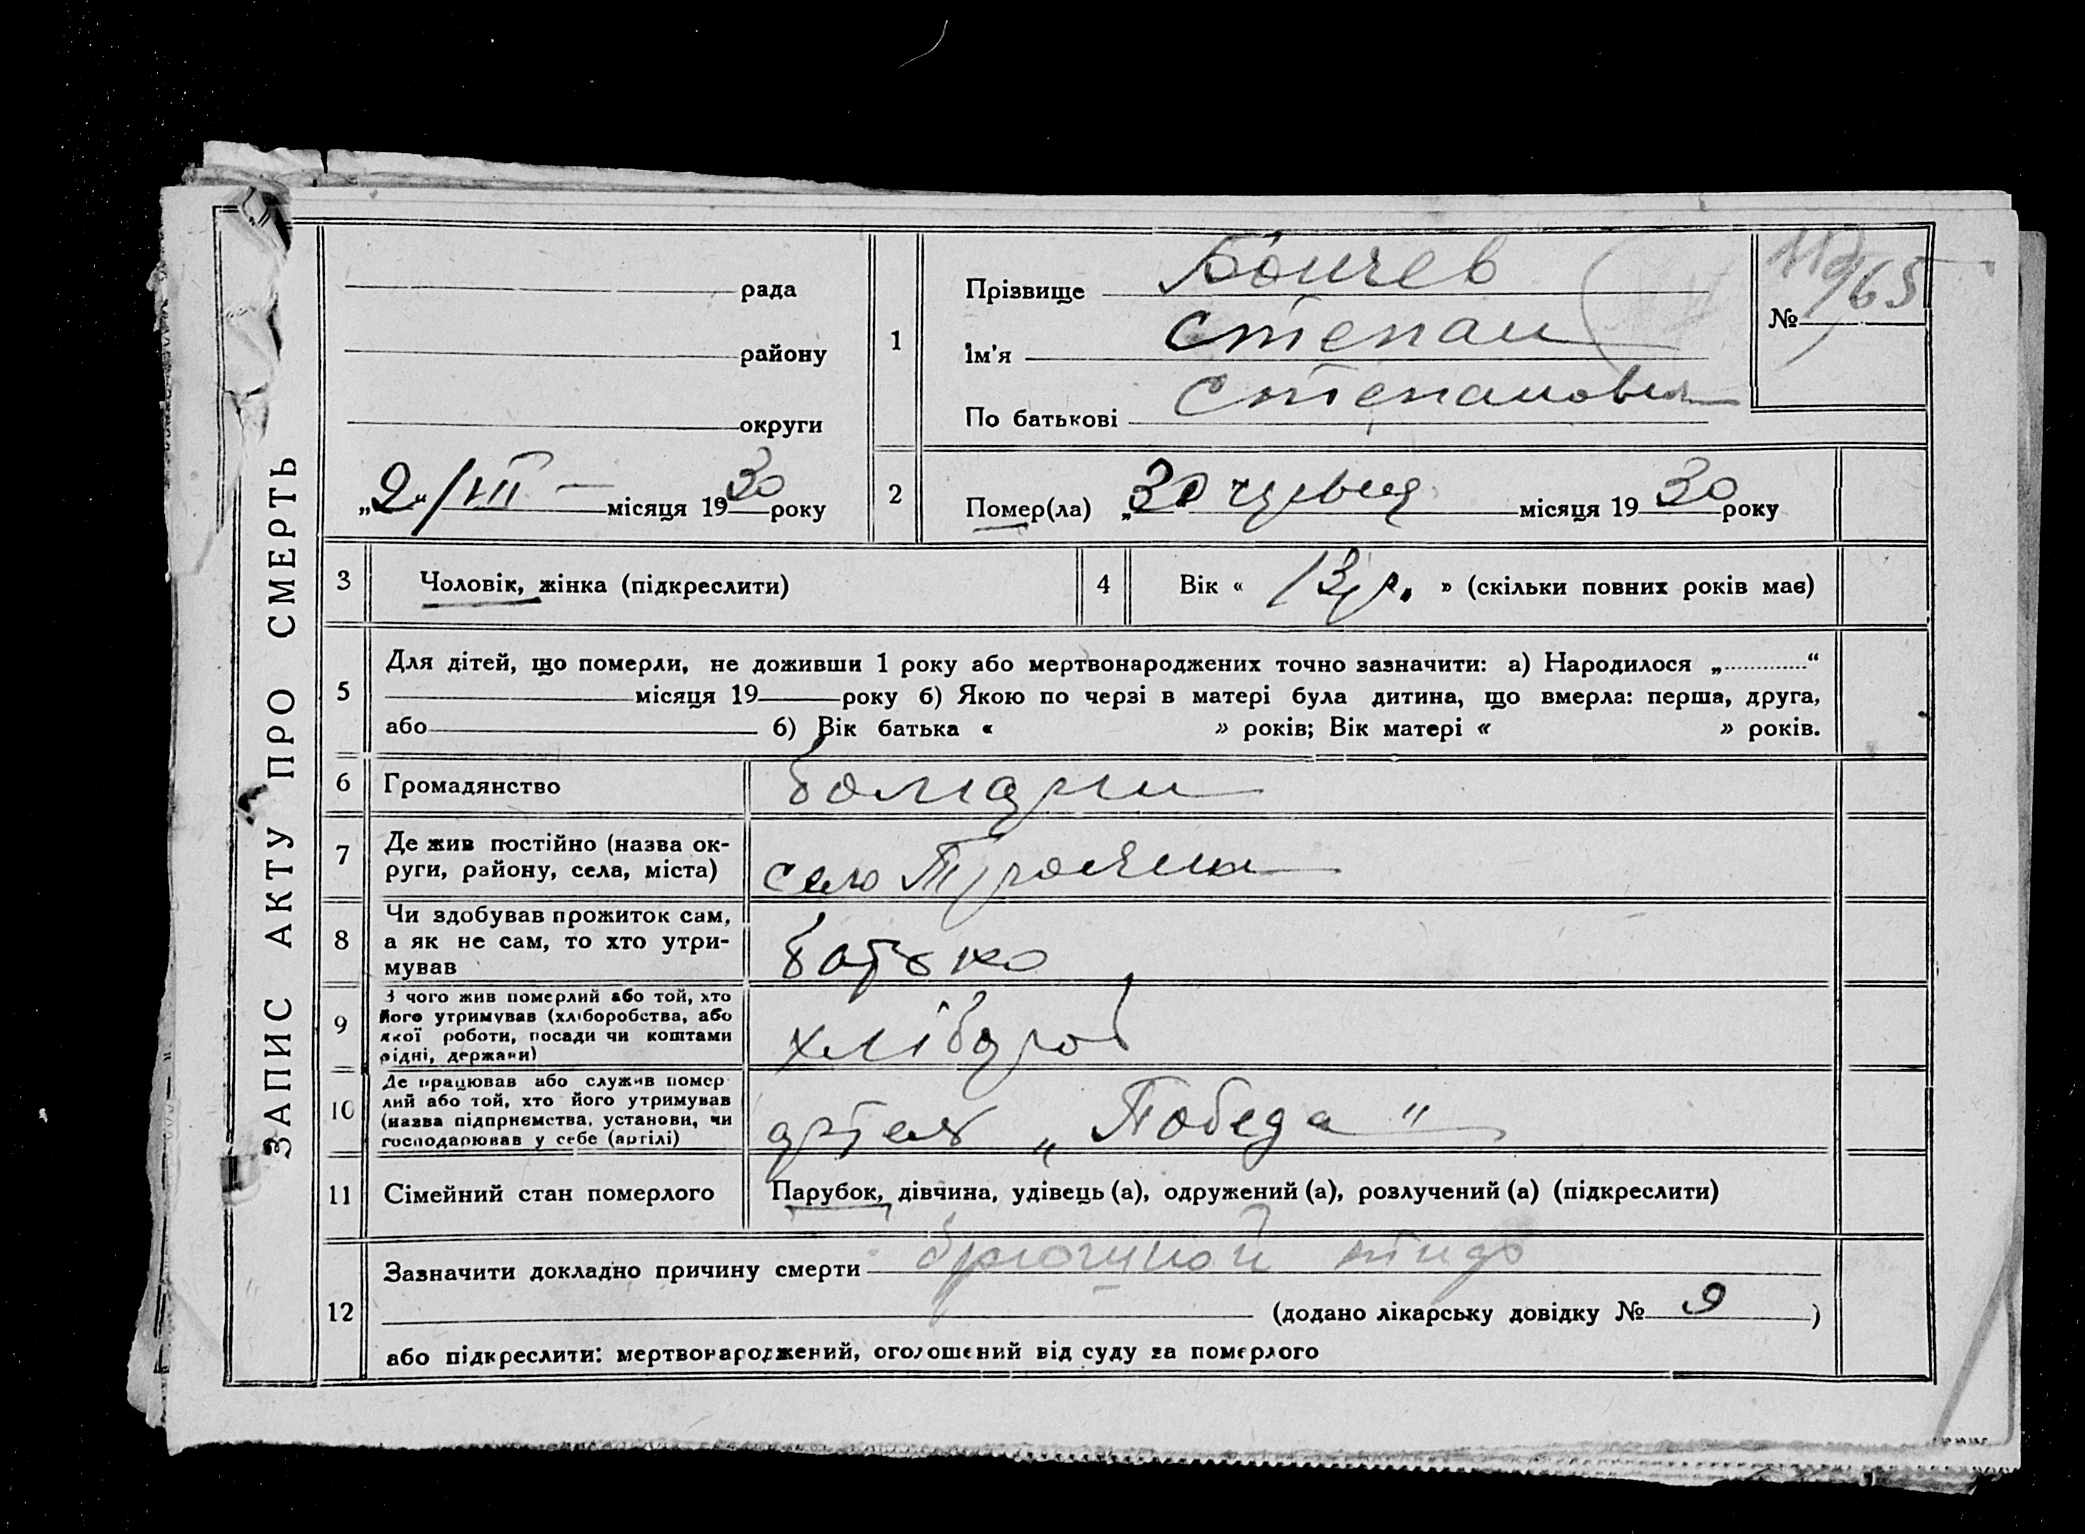 ЗАПИС АКТУ ПРО СМЕРТЬ
рада
району
округи
„2“/VII — місяця 1930 року
1
Прізвище Бончев
Ім'я Степан
По батькові Степанович
№ 65
2
Помер(ла) „30 червня місяця 1930 року
3
Чоловік, жінка (підкреслити)
4
Вік « 13 р. » (скільки повних років має)
5
Для дітей, що померли, не доживши 1 року або мертвонароджених точно зазначити: а) Народилося „............“
місяця 19 року б) Якою по черзі в матері була дитина, що вмерла: перша, друга,
або б) Вік батька « » років; Вік матері « » років.
6
Громадянство
7
Де жив постійно (назва ок-
руги, району, села, міста)
село
8
Чи здобував прожиток сам,
а як не сам, то хто утри-
мував
батько
9
З чого жив померлий або той, хто
його утримував (хліборобства, або
якої роботи, посади чи коштами
рідні, держави)
хлібороб
10
Де працював або служив помер
лий або той, хто його утримував
(назва підприємства, установи, чи
господарював у себе (артілі)
артель „Победа"
11
Сімейний стан померлого
Парубок, дівчина, удівець (а), одружений (а), розлучений (а) (підкреслити)
12
Зазначити докладно причину смерти брюшной тиф
(додано лікарську довідку № 9 )
або підкреслити: мертвонароджений, оголошений від суду за померлого